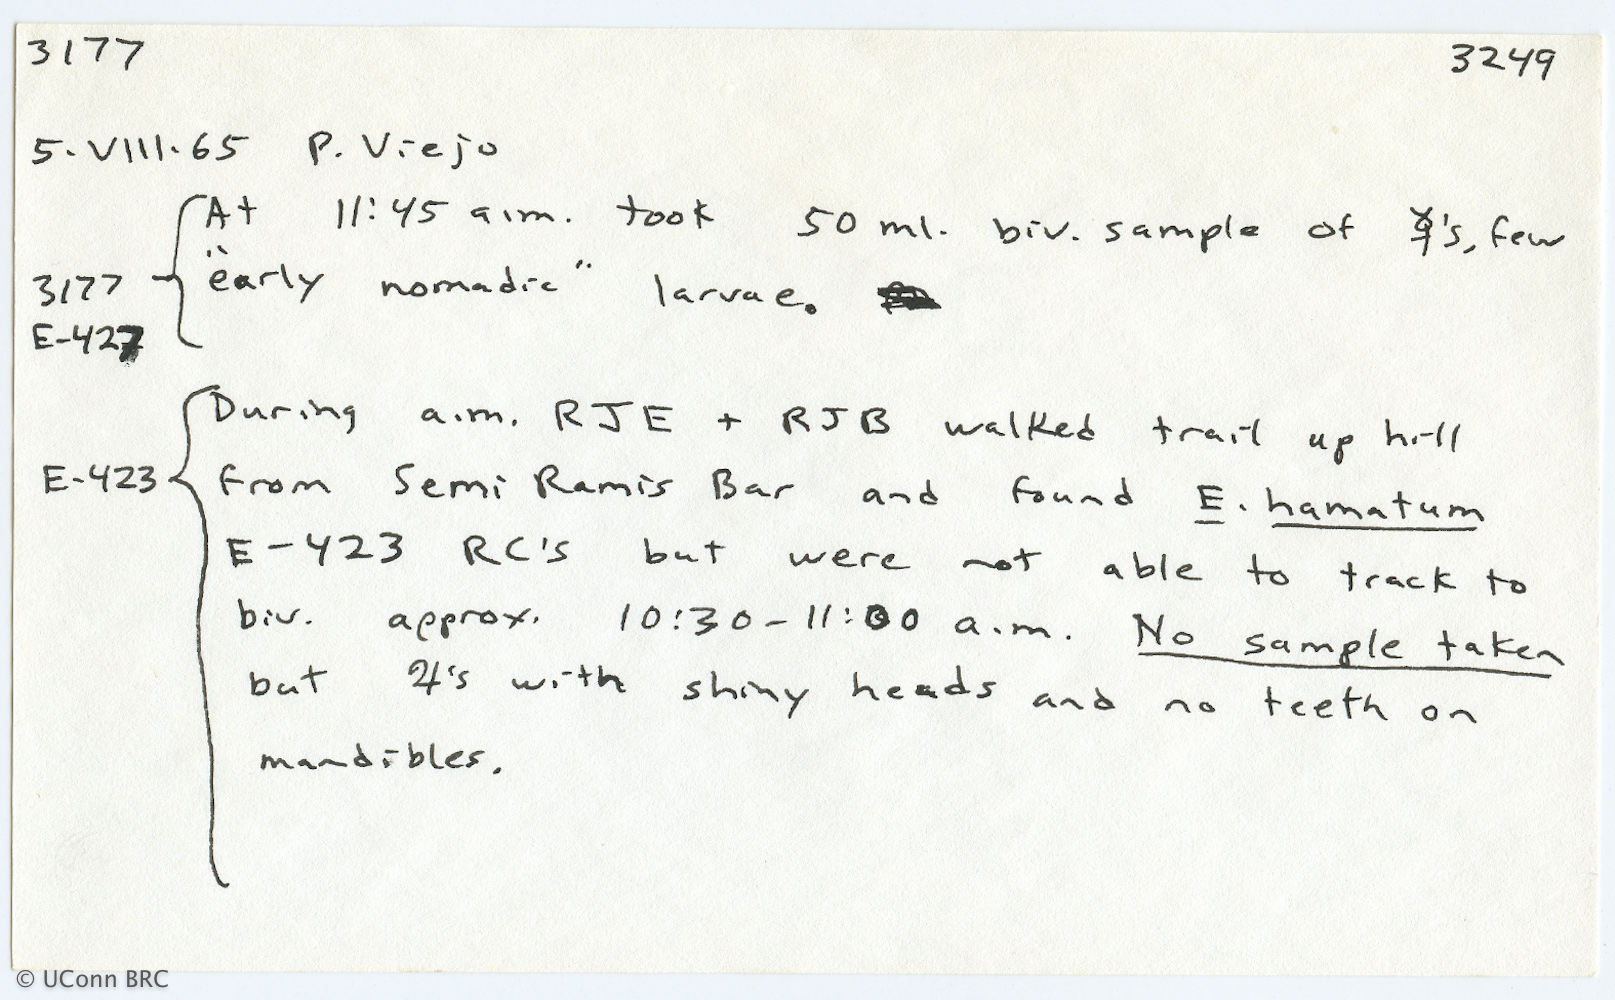 3177 3249
5·VIII·65 P. Viejo
At 11:45 a.m. took 50 ml. biv. sample of ☿'s, few
3177 "early nomadic" larvae.
E-427
During a.m. RJE + RJB walked trail up hill
E-423 from Semi Ramis Bar and found E. hamatum
E-423 RC's but were not able to track to
biv. approx. 10:30-11:00 a.m. No sample taken
but ♃'s with shiny heads and no teeth on
mandibles.
© UConn BRC